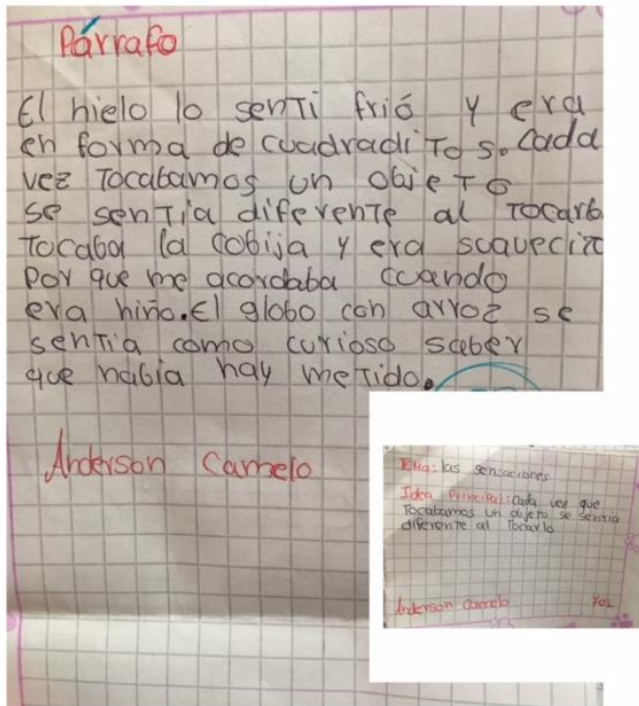 Párrafo
El hielo lo senti frió y era
en forma de cuadraditos. Cada
vez Tocabamos un objeto
se sentia diferente al Tocarlo
Tocaba la cobija y era suavecit
por que me acordaba cuando
era niño. El globo con arroz se
sentia como curioso saber
que habia hay metido.
Anderson Camelo
Tema: las sensaciones
Idea Principal: Cada vez que
Tocabamos un objeto se sentia
diferente al Tocarlo
Anderson Camelo 402